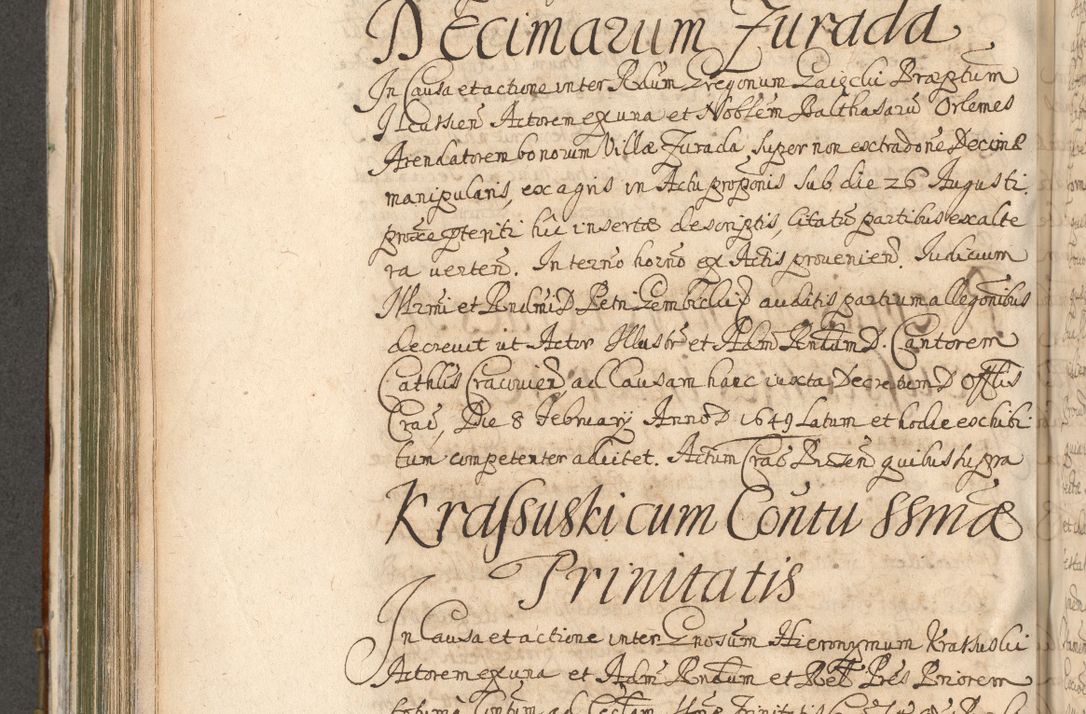 DEcimarum Jurada
In Causa et actione inter Rdūm Gregorium Gaięcki Præptum
Ilcussien̄ Actorem ex una et Noblem Balthasarū Orlemes
Arendatorem bonorum Villæ Jurada, super non extradone Decimæ
manipularis, ex agris in Actu propōnis sub die 26 Augusti
proxe ptęriti hic insertæ descriptis, citatis partibus ex alte
ra verten̄. In termo horno ex Actis provenien̄. Judicium
Illrmi et Rndmi D Petri Gembicki D auditis partium allegonibus
decrevit ut Actor Illustr et Adm Rndum D. Cantorem
Cathlis Cracovien̄ ad Causam hanc iuxta Decretum D Offlis
Crac̄, Die 8 February Anno D 1649 Latum et hodie exhibi
tum competenter advitet. Actum Crac Pr̄sen̄ quibus supra
Krassuski cum Contu SSmæ
Trinitatis
In Causa et actione inter Gnosum Hieronymum Krassuski
Actorem ex una et Adm Rndum et Rel Pres Priorem